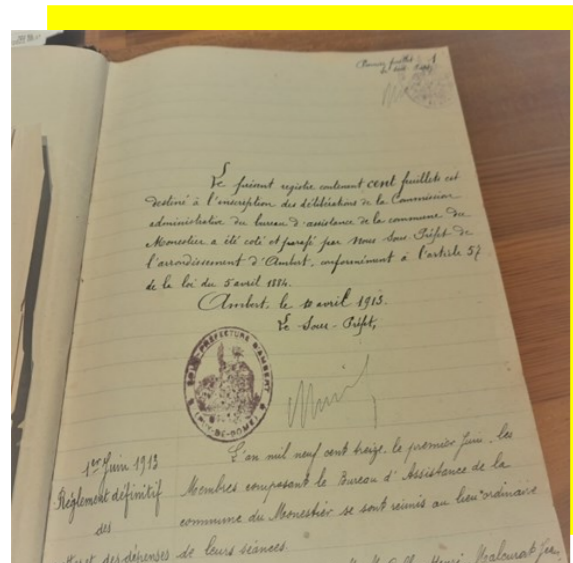 Premier feuillet 1
Le présent registre contenant cent feuillets est
destiné à l'inscription des délibérations de la Commission
administrative du bureau d'assistance de la commune du
Monestier a été coté et parafé par Nous Sous-Préfet de
l'arrondissement d'Ambert, conformément à l'article 57
de la loi du 5 avril 1884.
Ambert, le avril 1913.
Le Sous-Préfet,
SOUS-PRÉFECTURE D'AMBERT
(PUY-DE-DOME)
1er Juin 1913
Règlement définitif
des
et des dépenses
L'an mil neuf cent treize, le premier Juin, les
Membres composant le Bureau d'Assistance de la
commune du Monestier se sont réunis au lieu ordinaire
de leurs séances.
Henri, Malcourat